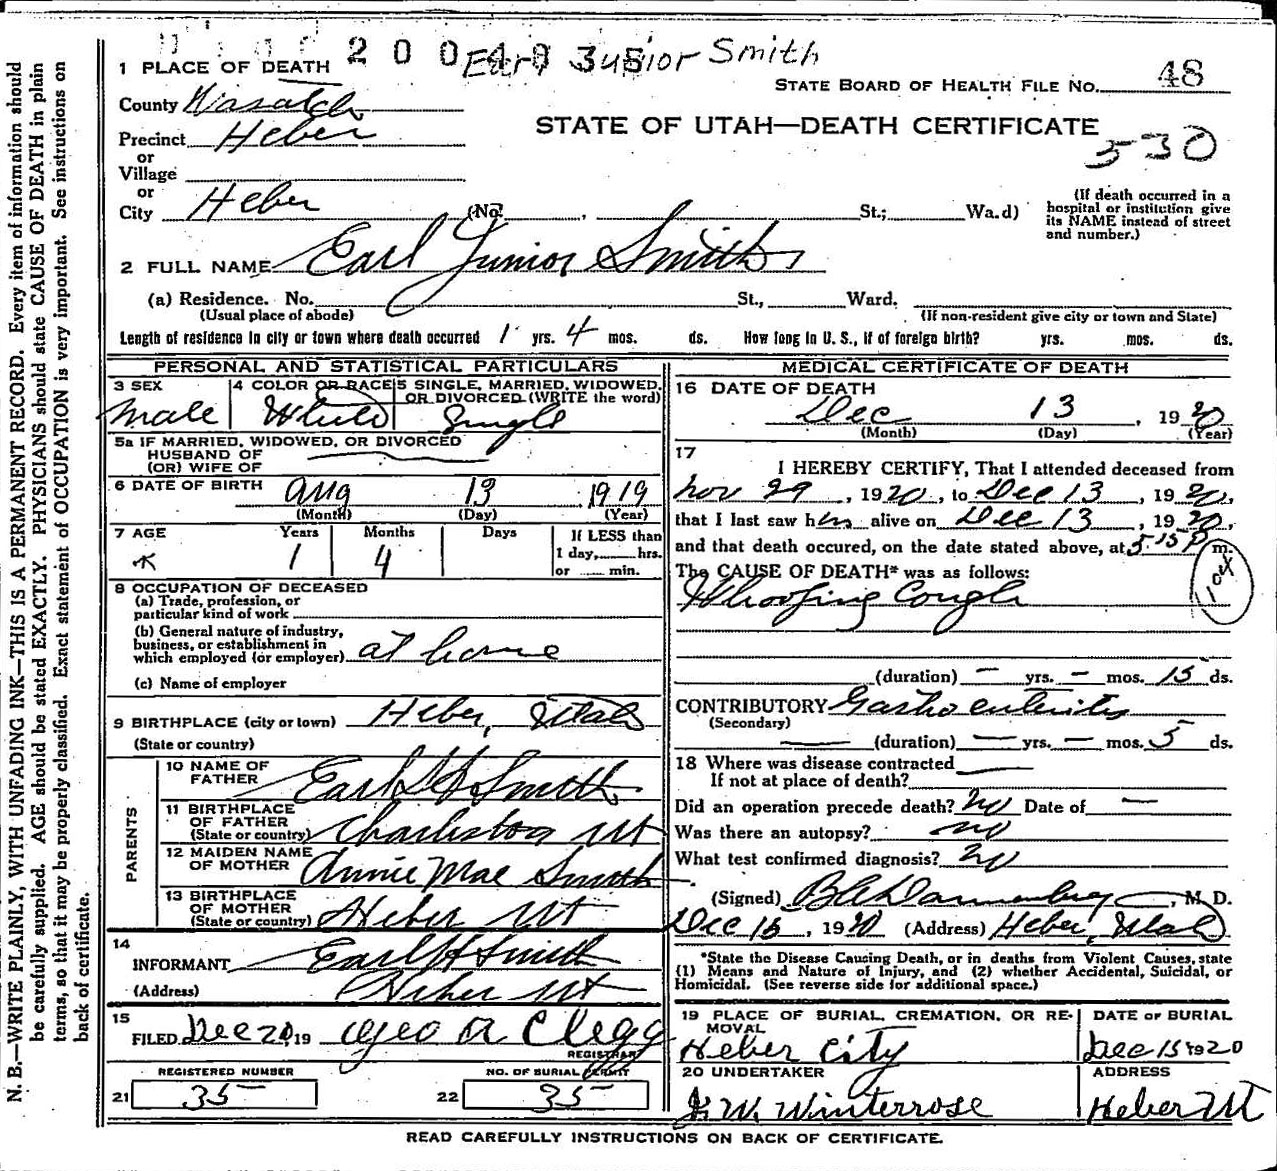 2004035
Earl Junior Smith
1 PLACE OF DEATH
STATE BOARD OF HEALTH FILE NO. 48
County Wasatch
STATE OF UTAH—DEATH CERTIFICATE
530
Precinct Heber
or
Village
or
City Heber (No. , St.; Wa.d)
(If death occurred in a
hospital or institution give
its NAME instead of street
and number.)
2 FULL NAME Earl Junior Smith
(a) Residence. No. St., Ward.
(Usual place of abode) (If non-resident give city or town and State)
Length of residence in city or town where death occurred 1 yrs. 4 mos. ds. How long in U. S., if of foreign birth? yrs. mos. ds.
PERSONAL AND STATISTICAL PARTICULARS
3 SEX 4 COLOR OR RACE 5 SINGLE, MARRIED, WIDOWED,
OR DIVORCED (WRITE the word)
Male White Single
5a IF MARRIED, WIDOWED, OR DIVORCED
HUSBAND OF
(OR) WIFE OF
6 DATE OF BIRTH Aug 13 1919
(Month) (Day) (Year)
7 AGE Years Months Days If LESS than
1 4 1 day, hrs.
or min.
8 OCCUPATION OF DECEASED
(a) Trade, profession, or
particular kind of work
(b) General nature of industry,
business, or establishment in
which employed (or employer) at home
(c) Name of employer
9 BIRTHPLACE (city or town) Heber, Utah
(State or country)
PARENTS
10 NAME OF
FATHER Earl H Smith
11 BIRTHPLACE
OF FATHER
(State or country) Charleston Ut
12 MAIDEN NAME
OF MOTHER Annie Mae Smith
13 BIRTHPLACE
OF MOTHER
(State or country) Heber Ut
14
INFORMANT Earl H Smith
(Address) Heber Ut
15
FILED Dec 20, 19 Geo A Clegg
REGISTRAR
REGISTERED NUMBER NO. OF BURIAL PERMIT
21 35 22 35
MEDICAL CERTIFICATE OF DEATH
16 DATE OF DEATH
Dec 13, 1920
(Month) (Day) (Year)
17
I HEREBY CERTIFY, That I attended deceased from
Nov 29, 1920, to Dec 13, 1920,
that I last saw him alive on Dec 13, 1920,
and that death occured, on the date stated above, at 5:15 P m.
The CAUSE OF DEATH* was as follows:
Whooping Cough
(duration) — yrs. — mos. 15 ds.
CONTRIBUTORY Gastro enteritis
(Secondary)
(duration) — yrs. — mos. 5 ds.
18 Where was disease contracted
If not at place of death?
Did an operation precede death? no Date of —
Was there an autopsy? no
What test confirmed diagnosis? no
(Signed) Dannenberg, M. D.
Dec 15, 1920 (Address) Heber, Utah
*State the Disease Causing Death, or in deaths from Violent Causes, state
(1) Means and Nature of Injury, and (2) whether Accidental, Suicidal, or
Homicidal. (See reverse side for additional space.)
19 PLACE OF BURIAL, CREMATION, OR RE-
MOVAL
Heber City
DATE OF BURIAL
Dec 15 1920
20 UNDERTAKER
J W. Winterrose
ADDRESS
Heber Ut
READ CAREFULLY INSTRUCTIONS ON BACK OF CERTIFICATE.
N. B.—WRITE PLAINLY, WITH UNFADING INK—THIS IS A PERMANENT RECORD. Every item of information should
be carefully supplied. AGE should be stated EXACTLY. PHYSICIANS should state CAUSE OF DEATH in plain
terms, so that it may be properly classified. Exact statement of OCCUPATION is very important. See instructions on
back of certificate.